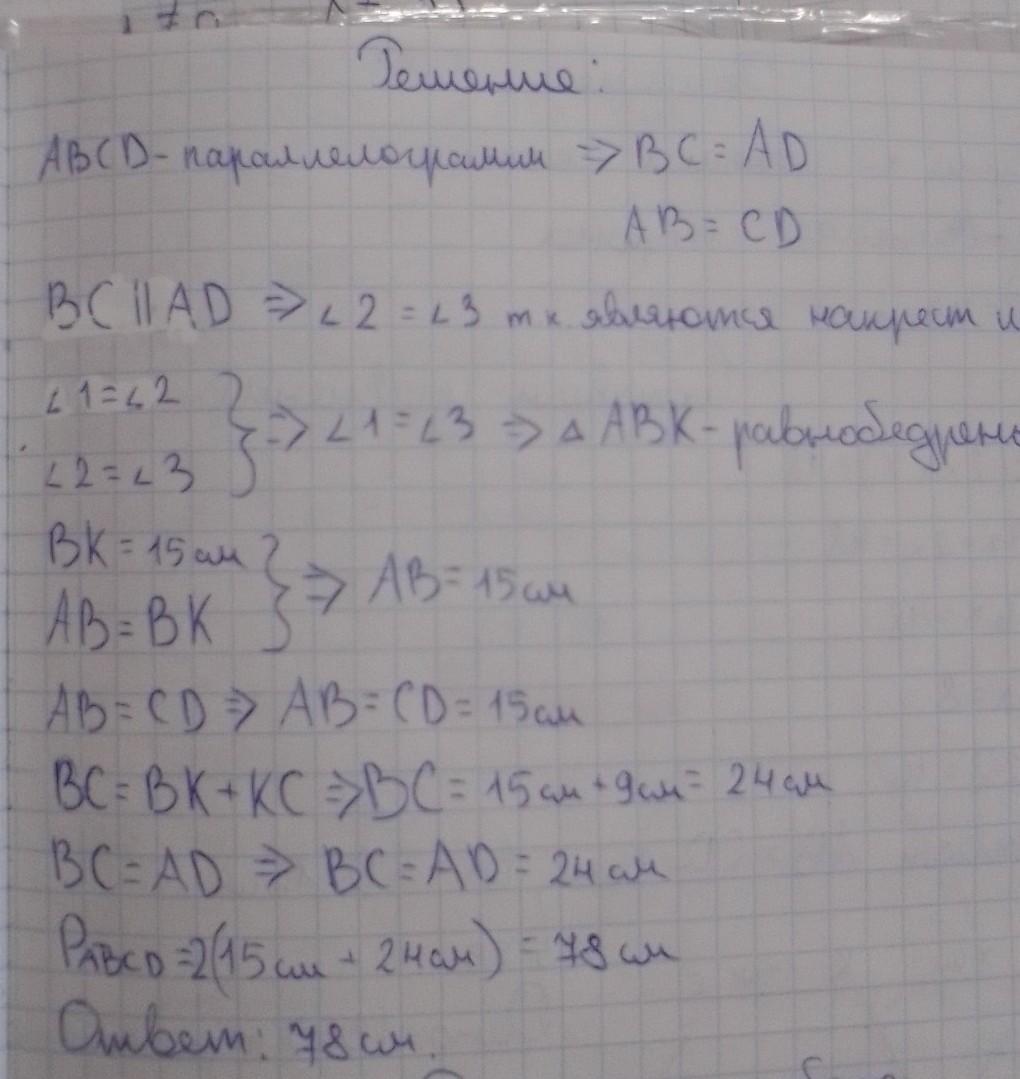 Решение:
ABCD - параллелограмм ⇒ BC = AD
AB = CD
BC || AD ⇒ ∠2 = ∠3 т к являются накрест
∠1 = ∠2
∠2 = ∠3 } ⇒ ∠1 = ∠3 ⇒ △ ABK - равнобедрен
BK = 15 см
AB = BK } ⇒ AB = 15 см
AB = CD ⇒ AB = CD = 15 см
BC = BK + KC ⇒ BC = 15 см + 9 см = 24 см
BC = AD ⇒ BC = AD = 24 см
PABCD = 2(15 см + 24 см) = 78 см
Ответ: 78 см.